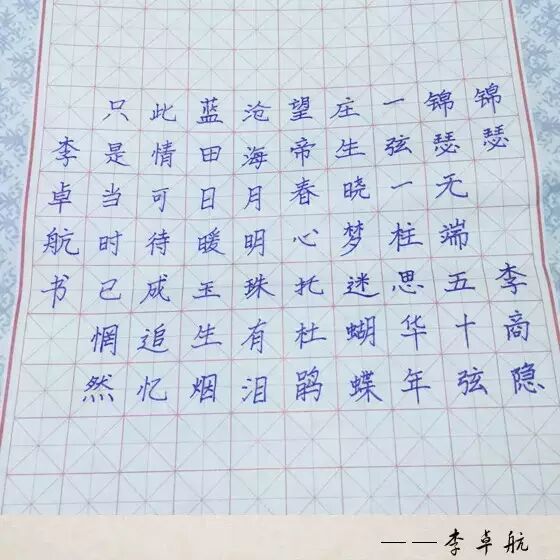 锦瑟 李商隐
锦瑟无端五十弦
一弦一柱思华年
庄生晓梦迷蝴蝶
望帝春心托杜鹃
沧海月明珠有泪
蓝田日暖玉生烟
此情可待成追忆
只是当时已惘然
李卓航书
——李卓航